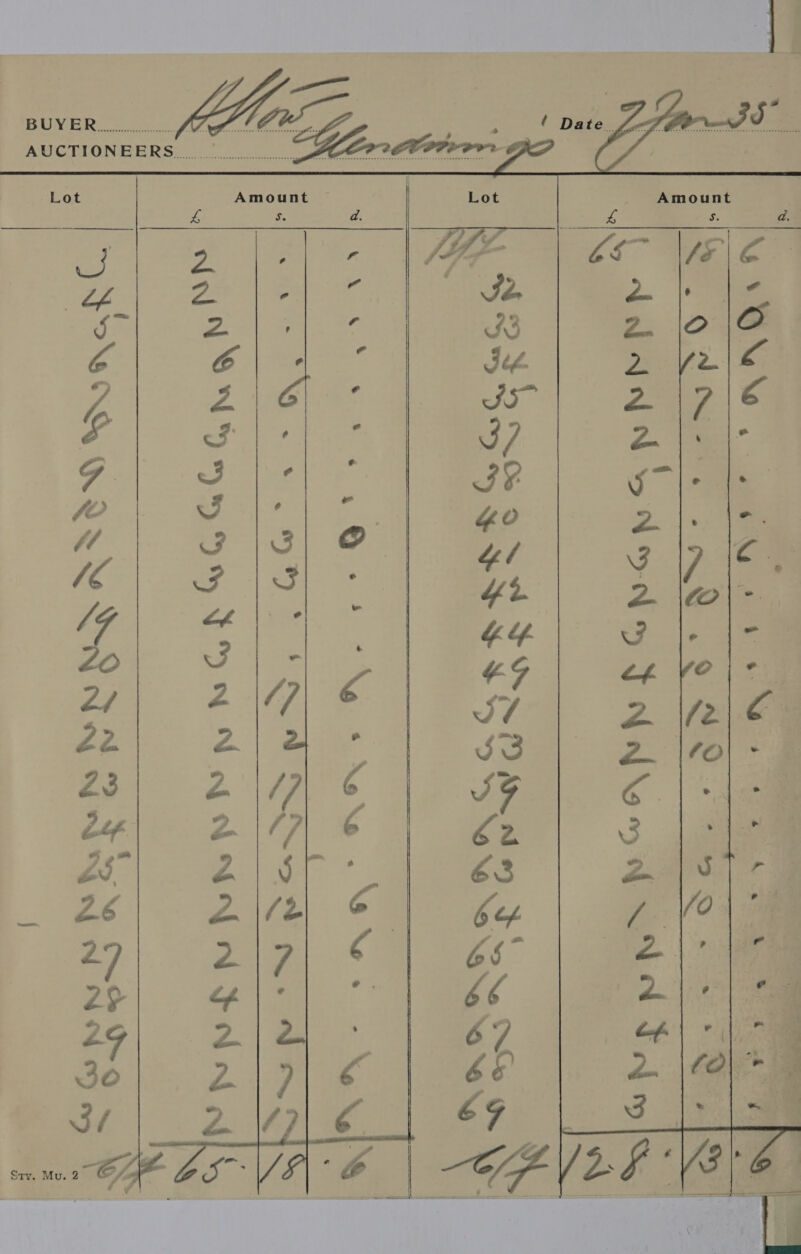 BUYER
Date 7 Jan 35
AUCTIONEERS
Lot Amount Lot Amount
£ s. d. £ s. d.
3 2 . . B/F 65 18 6
4 2 . . 32 2 . .
5 2 . . 33 2 0 0
6 6 . . 34 2 12 6
7 2 6 . 35 2 7 6
8 3 . . 37 2 . .
9 3 . . 38 5 . .
10 3 . . 40 2 . .
11 3 3 0 41 3 7 6
16 3 3 . 42 2 10 .
19 4 . . 44 3 . .
20 3 . . 49 4 10 .
21 2 17 6 51 2 12 6
22 2 2 . 53 2 10 .
23 2 17 6 59 6 . .
24 2 17 6 62 3 . .
25 2 5 . 63 2 5 .
26 2 12 6 64 1 10 .
27 2 7 6 65 2 . .
28 4 . . 66 2 . .
29 2 2 . 67 4 . .
30 2 7 6 68 2 10 .
31 2 17 6 69 3 . .
Sty. Mu. 2 C/F 65 18 6 C/F 128 13 6